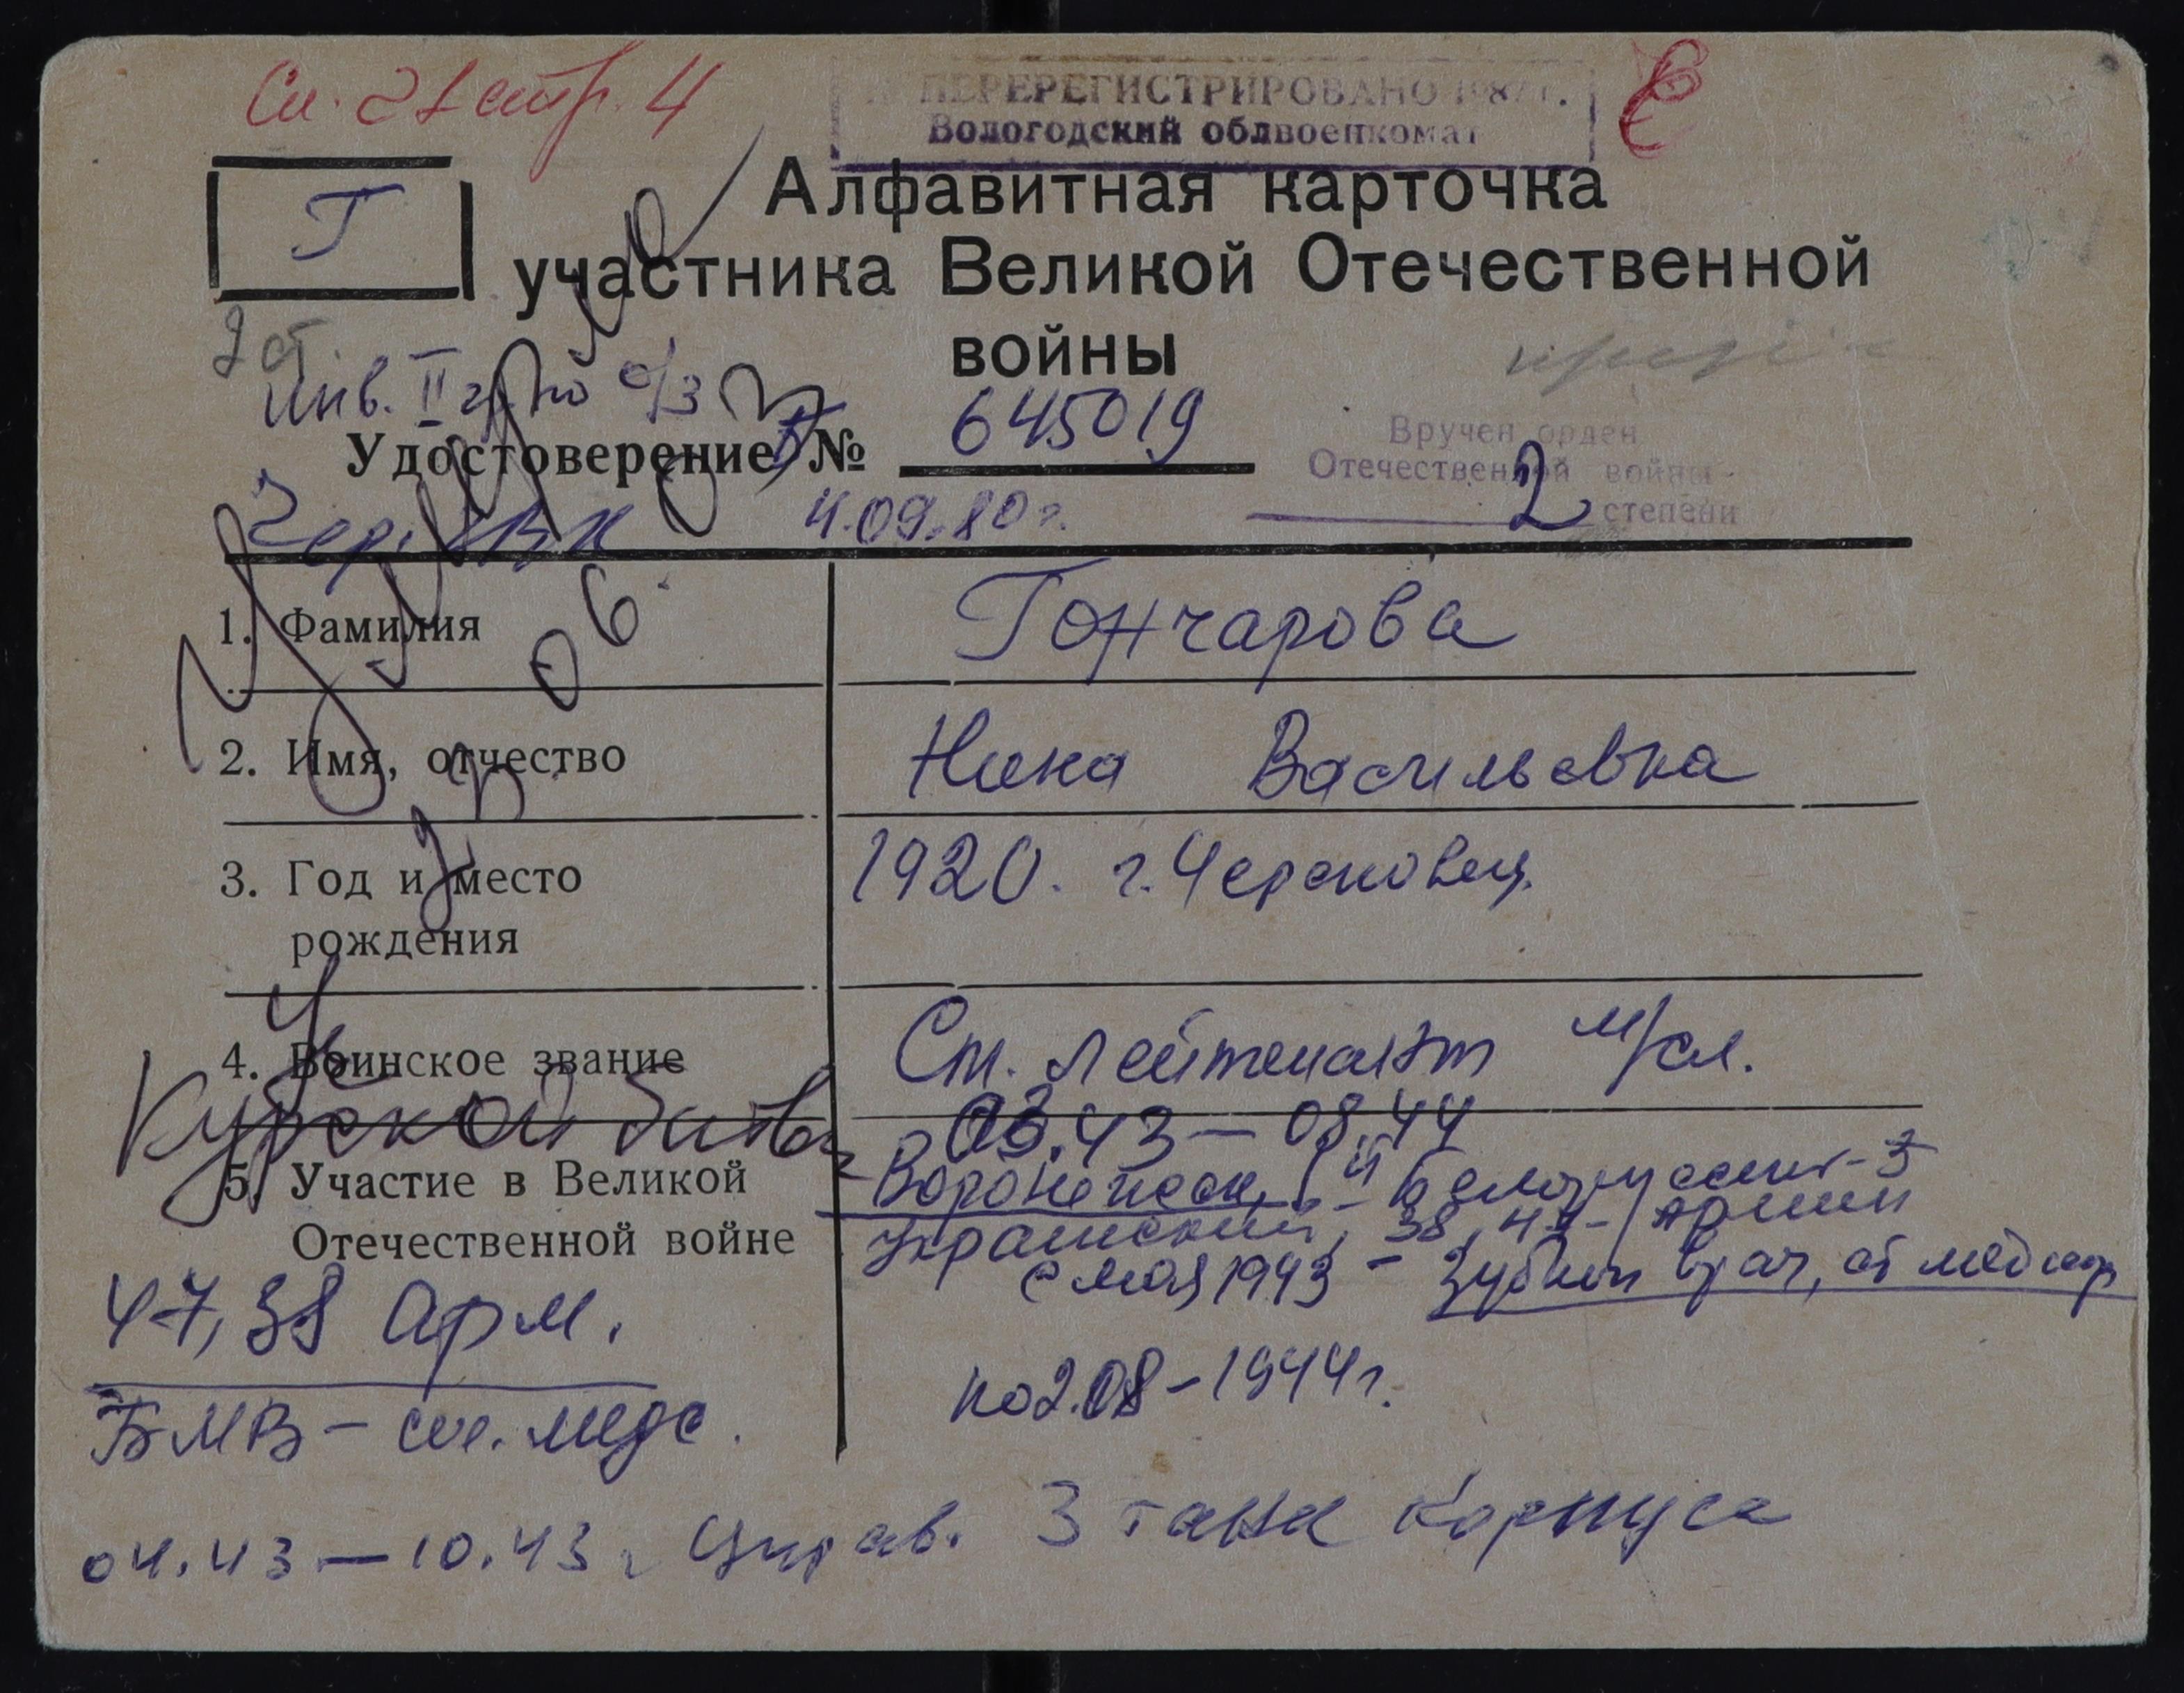 Сп. 21 стр. 4
ПЕРЕРЕГИСТРИРОВАНО 1987 г.
Вологодский облвоенкомат
Г
Алфавитная карточка
участника Великой Отечественной
войны
инв. II гр. по о/з
Удостоверение № 645019
Вручен орден
Отечественной войны
2 степени
Чер. ГВК 4.09.80 г.
1. Фамилия Гончарова
2. Имя, отчество Нина Васильевна
3. Год и место рождения 1920. г. Череповец
4. Воинское звание Ст. лейтенант м/сл.
Курской битвы
03.43 – 08.44
5. Участие в Великой Отечественной войне
Воронежск
Украинский, 38, 47 – армии
с мая 1943 – зубной врач, ст медсестр
47, 38 арм.
по 2.08 – 1944 г.
БМВ – ст. медс.
04.43 – 10.43 г Управ. 3 танк корпуса